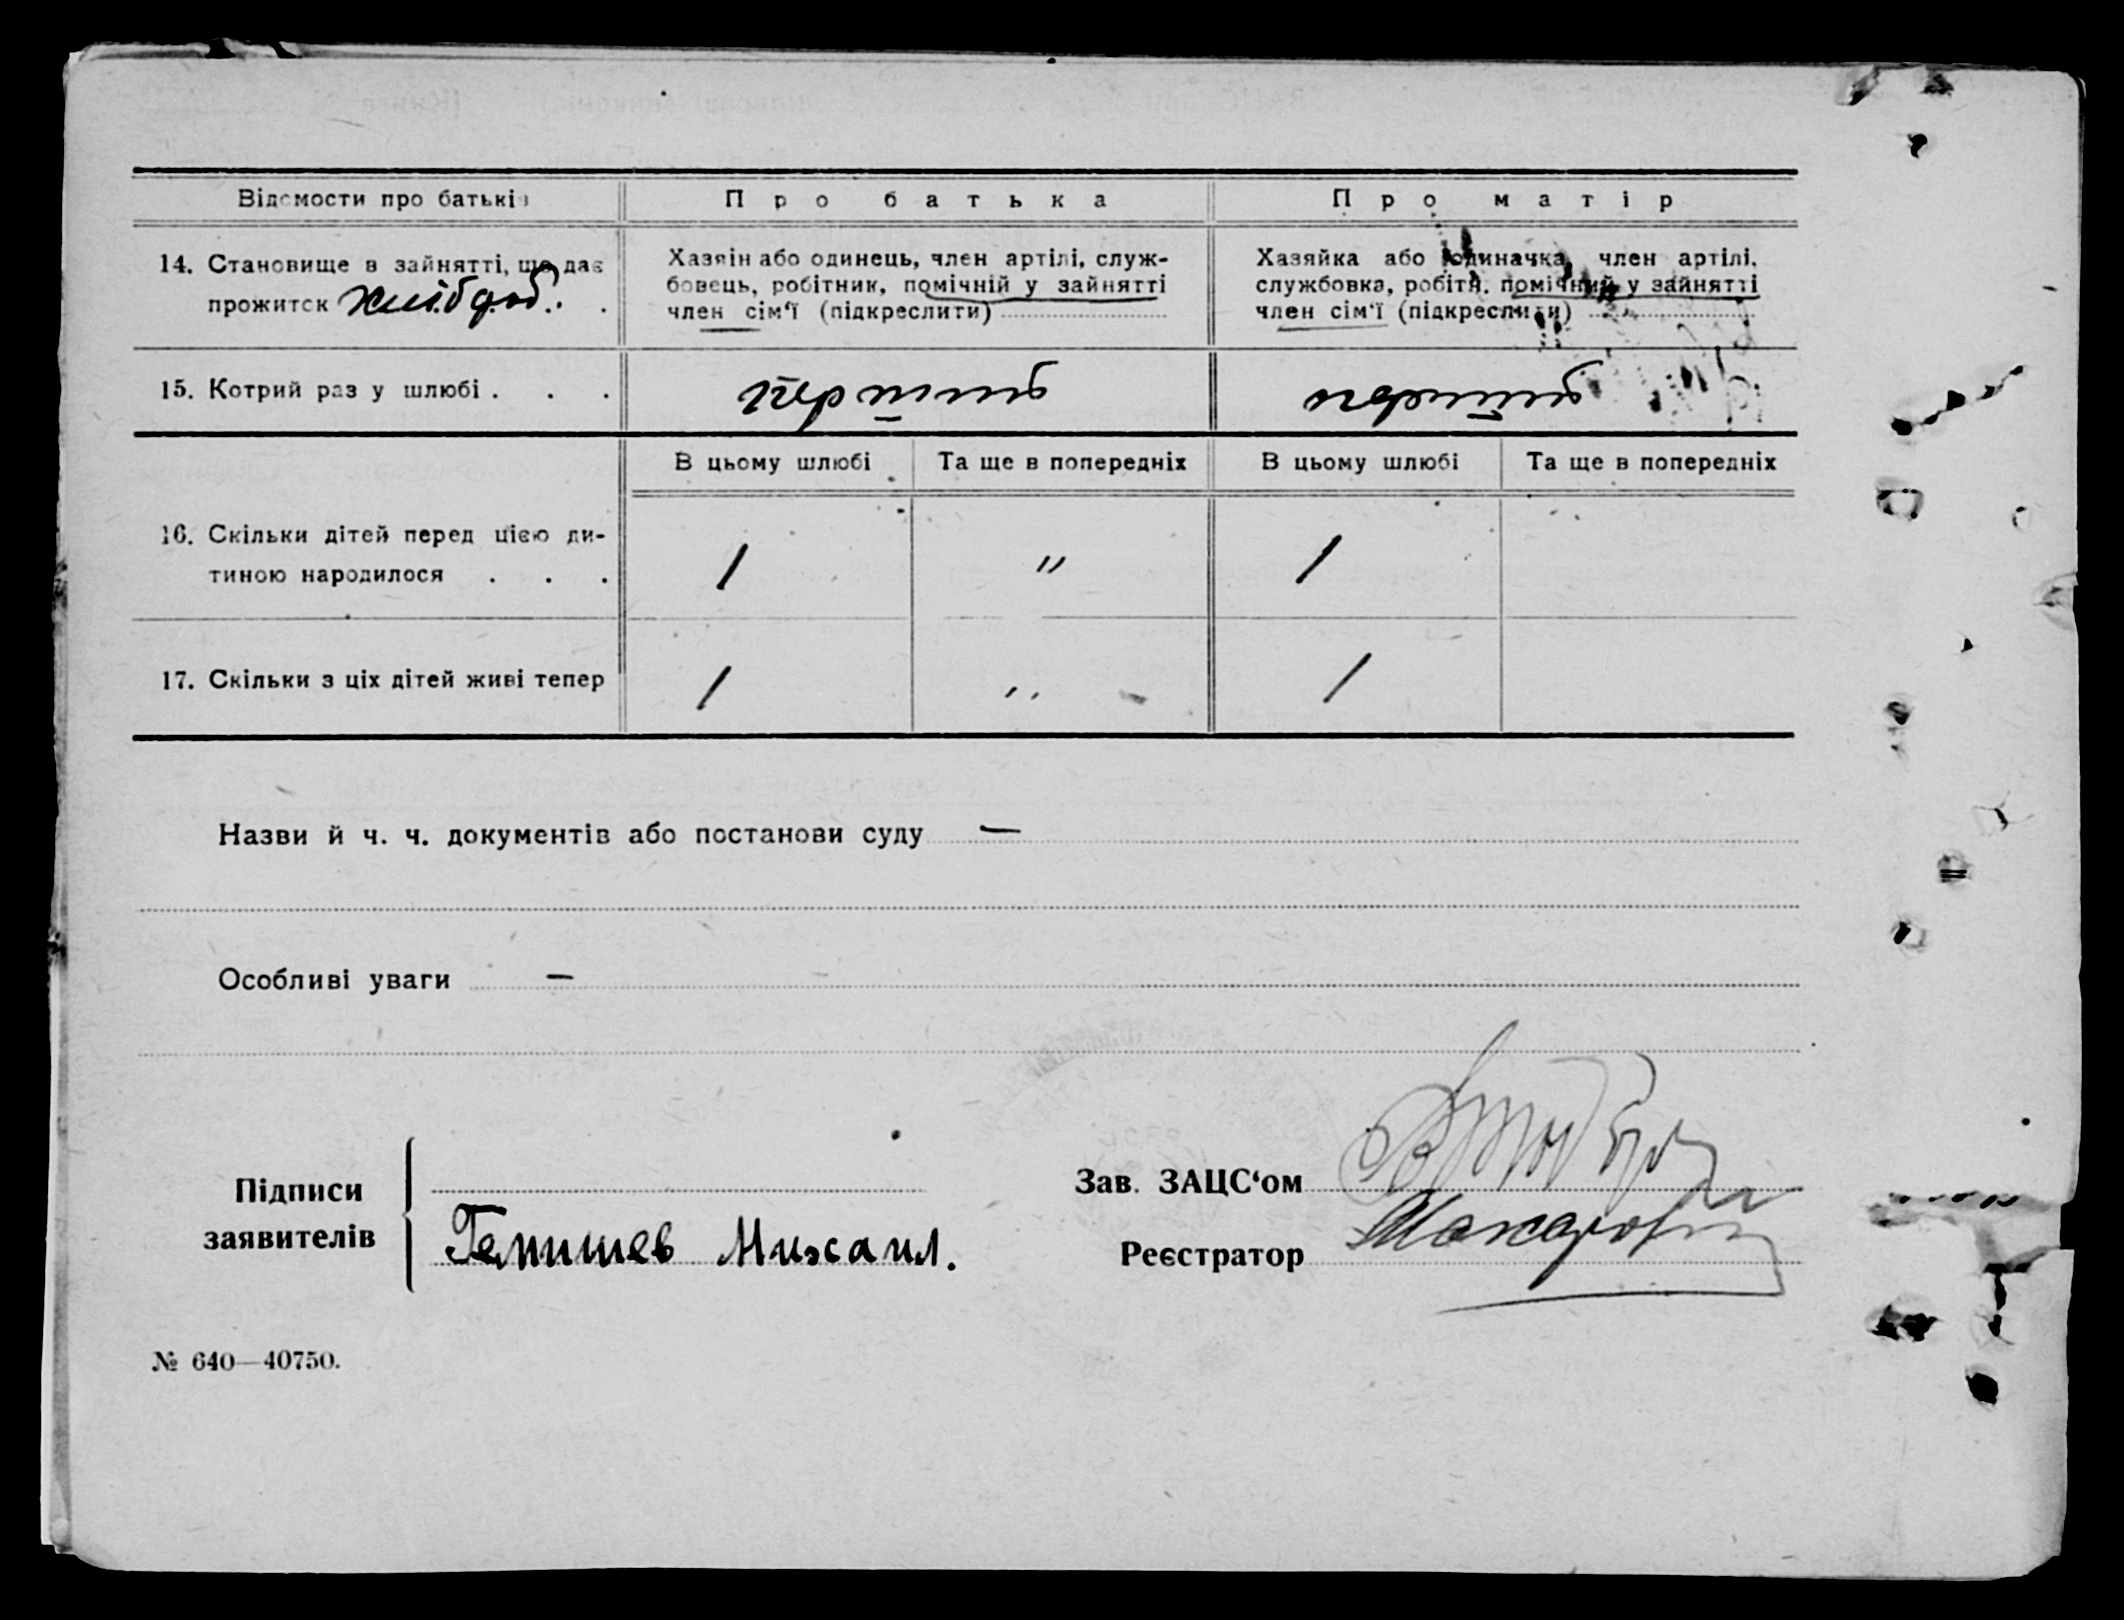 Відомости про батьків
Про батька
Про матір
14. Становище в зайнятті, що дає
прожиток хлібороб. .
Хазяїн або одинець, член артілі, служ-
бовець, робітник, помічній у зайнятті
член сім'ї (підкреслити)
Хазяйка або одиначка, член артілі,
службовка, робітн. помічний у зайнятті
член сім'ї (підкреслити)
15. Котрий раз у шлюбі . . .
первший
первший
В цьому шлюбі
Та ще в попередніх
В цьому шлюбі
Та ще в попередніх
16. Скільки дітей перед цією ди-
тиною народилося . . .
1
"
1
17. Скільки з ціх дітей живі тепер
1
"
1
Назви й ч. ч. документів або постанови суду —
Особливі уваги —
Підписи
заявителів
Гепишев Михаил.
Зав. ЗАЦС'ом
Реєстратор
№ 640—40750.